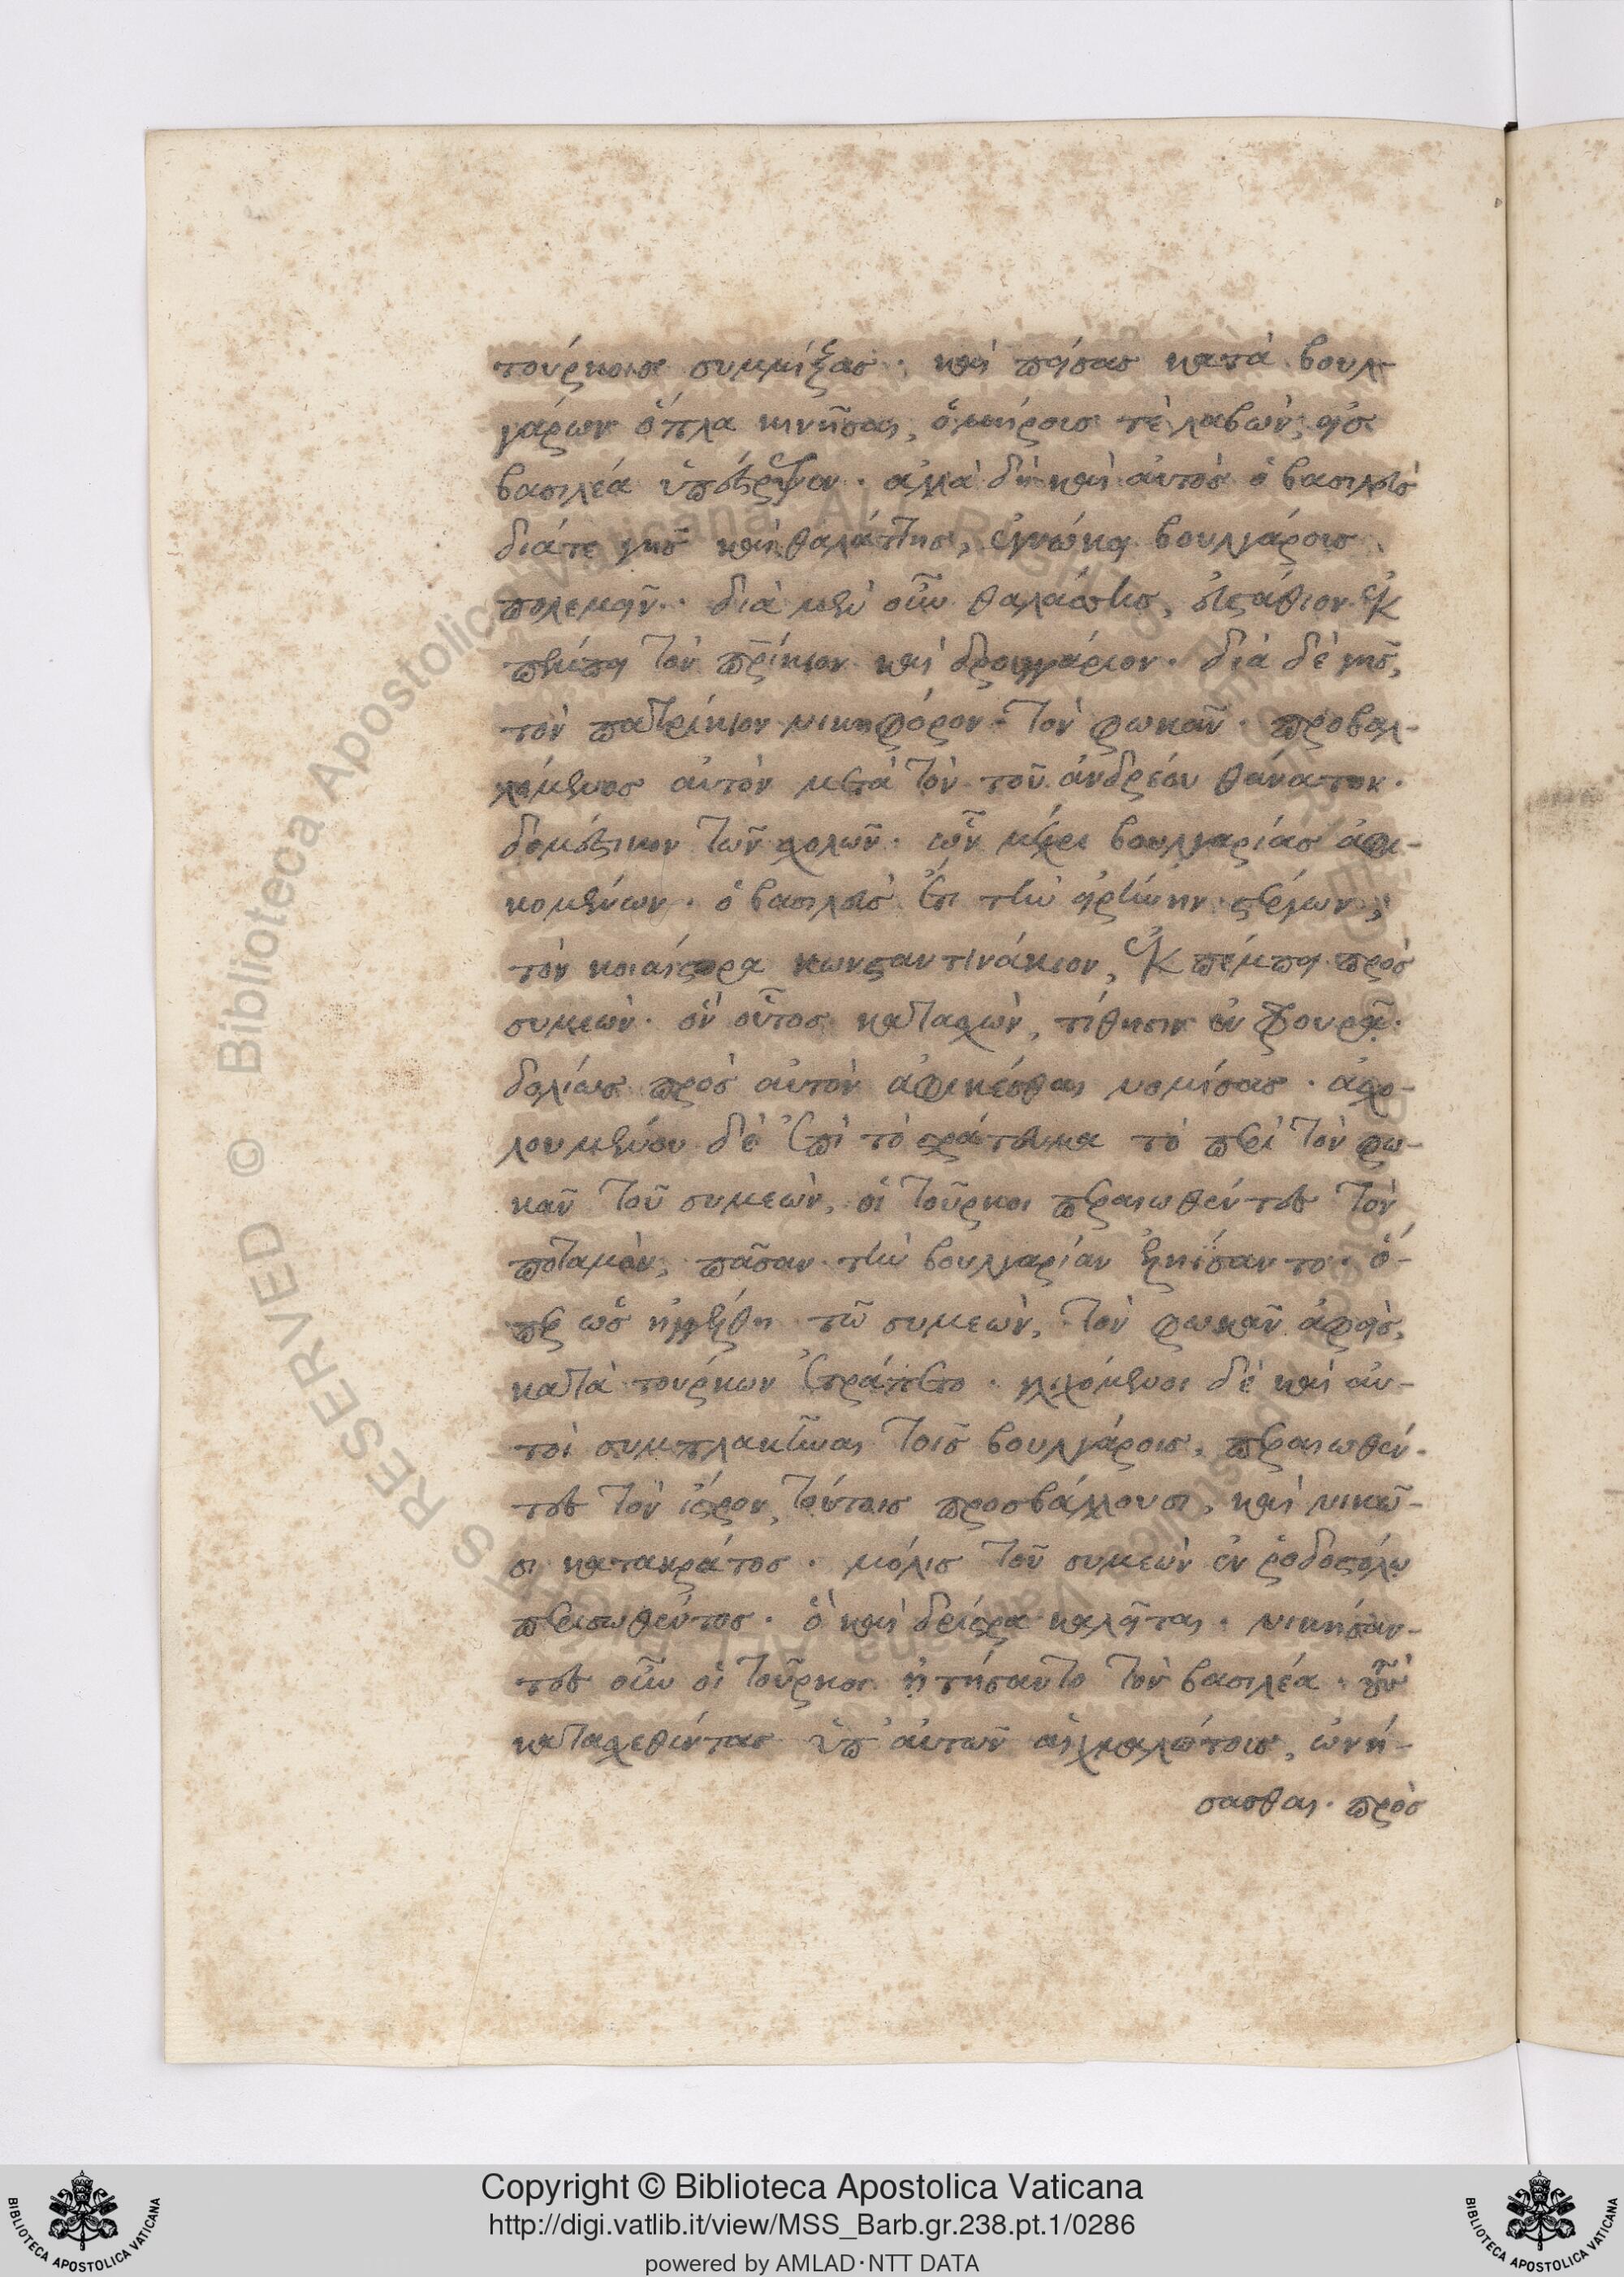 τούρκοις συμμίξας· καὶ πείσας κατὰ βουλ-
γάρων ὅπλα κινῆσαι, ὁμήρους τὲ λαβών, εἰς
βασιλέα ὑπέστρεψεν· ἀλλὰ δὴ καὶ αὐτὸς ὁ βασιλεὺς
διάτε γῆς καὶ θαλάττης, ἐγνώκει βουλγάροις
πολεμεῖν· διὰ μὲν οὖν θαλάσσης, εὐστάθιον ἐκ
πέμπει τὸν πρίκιον καὶ δρουγγάριον· διὰ δὲ γῆς,
τὸν πατρίκιον νικηφόρον τὸν φωκᾶν· προβαλ-
λόμενος αὐτὸν μετὰ τὸν τοῦ ἀνδρέου θάνατον·
δομέστικον τῶν σχολῶν· ὧν μέχρι βουλγαρίας ἀφι-
κομένων· ὁ βασιλεὺς ἔτι τὴν εἰρήνην στέργων,
τὸν κοιαίστορα κωνσταντινάκιον, ἐκ πέμπει πρὸς
συμεών· ὃν οὗτος κατασχὼν, τίθησιν ἐν φρουρᾷ·
δολίως πρὸς αὐτὸν ἀφικέσθαι νομίσας· ἀσχο-
λουμένου δὲ ἐπὶ τὸ στράτευμα τὸ περὶ τὸν φω-
κᾶν τοῦ συμεών, οἱ τοῦρκοι περαιωθέντες τὸν
ποταμὸν, πᾶσαν τὴν βουλγαρίαν ἐληΐσαντο· ὅ-
περ ὡς ἠγγέλθη τῶ συμεών, τὸν φωκᾶν ἀφεὶς,
κατὰ τούρκων ἐτράπετο· γλιχόμενοι δὲ καὶ αὐ-
τοὶ συμπλακῆναι τοῖς βουλγάροις, περαιωθέν-
τες τὸν ἴστρον, τούτοις προσβάλλουσι, καὶ νικῶ-
σι κατακράτος· μόλις τοῦ συμεὼν ἐν ῥοδοστόλω
περισωθέντος· ὃ καὶ δρίστρα καλεῖται· νικήσαν-
τες οὖν οἱ τοῦρκοι ᾐτήσαντο τὸν βασιλέα· τοὺς
κατασχεθέντας ὑπ' αὐτῶν αἰχμαλώτους, ὠνή-
σασθαι· πρὸς
Biblioteca Apostolica Vaticana ALL RIGHTS RESERVED ©
Copyright © Biblioteca Apostolica Vaticana
http://digi.vatlib.it/view/MSS_Barb.gr.238.pt.1/0286
powered by AMLAD·NTT DATA
BIBLIOTECA APOSTOLICA VATICANA
BIBLIOTECA APOSTOLICA VATICANA